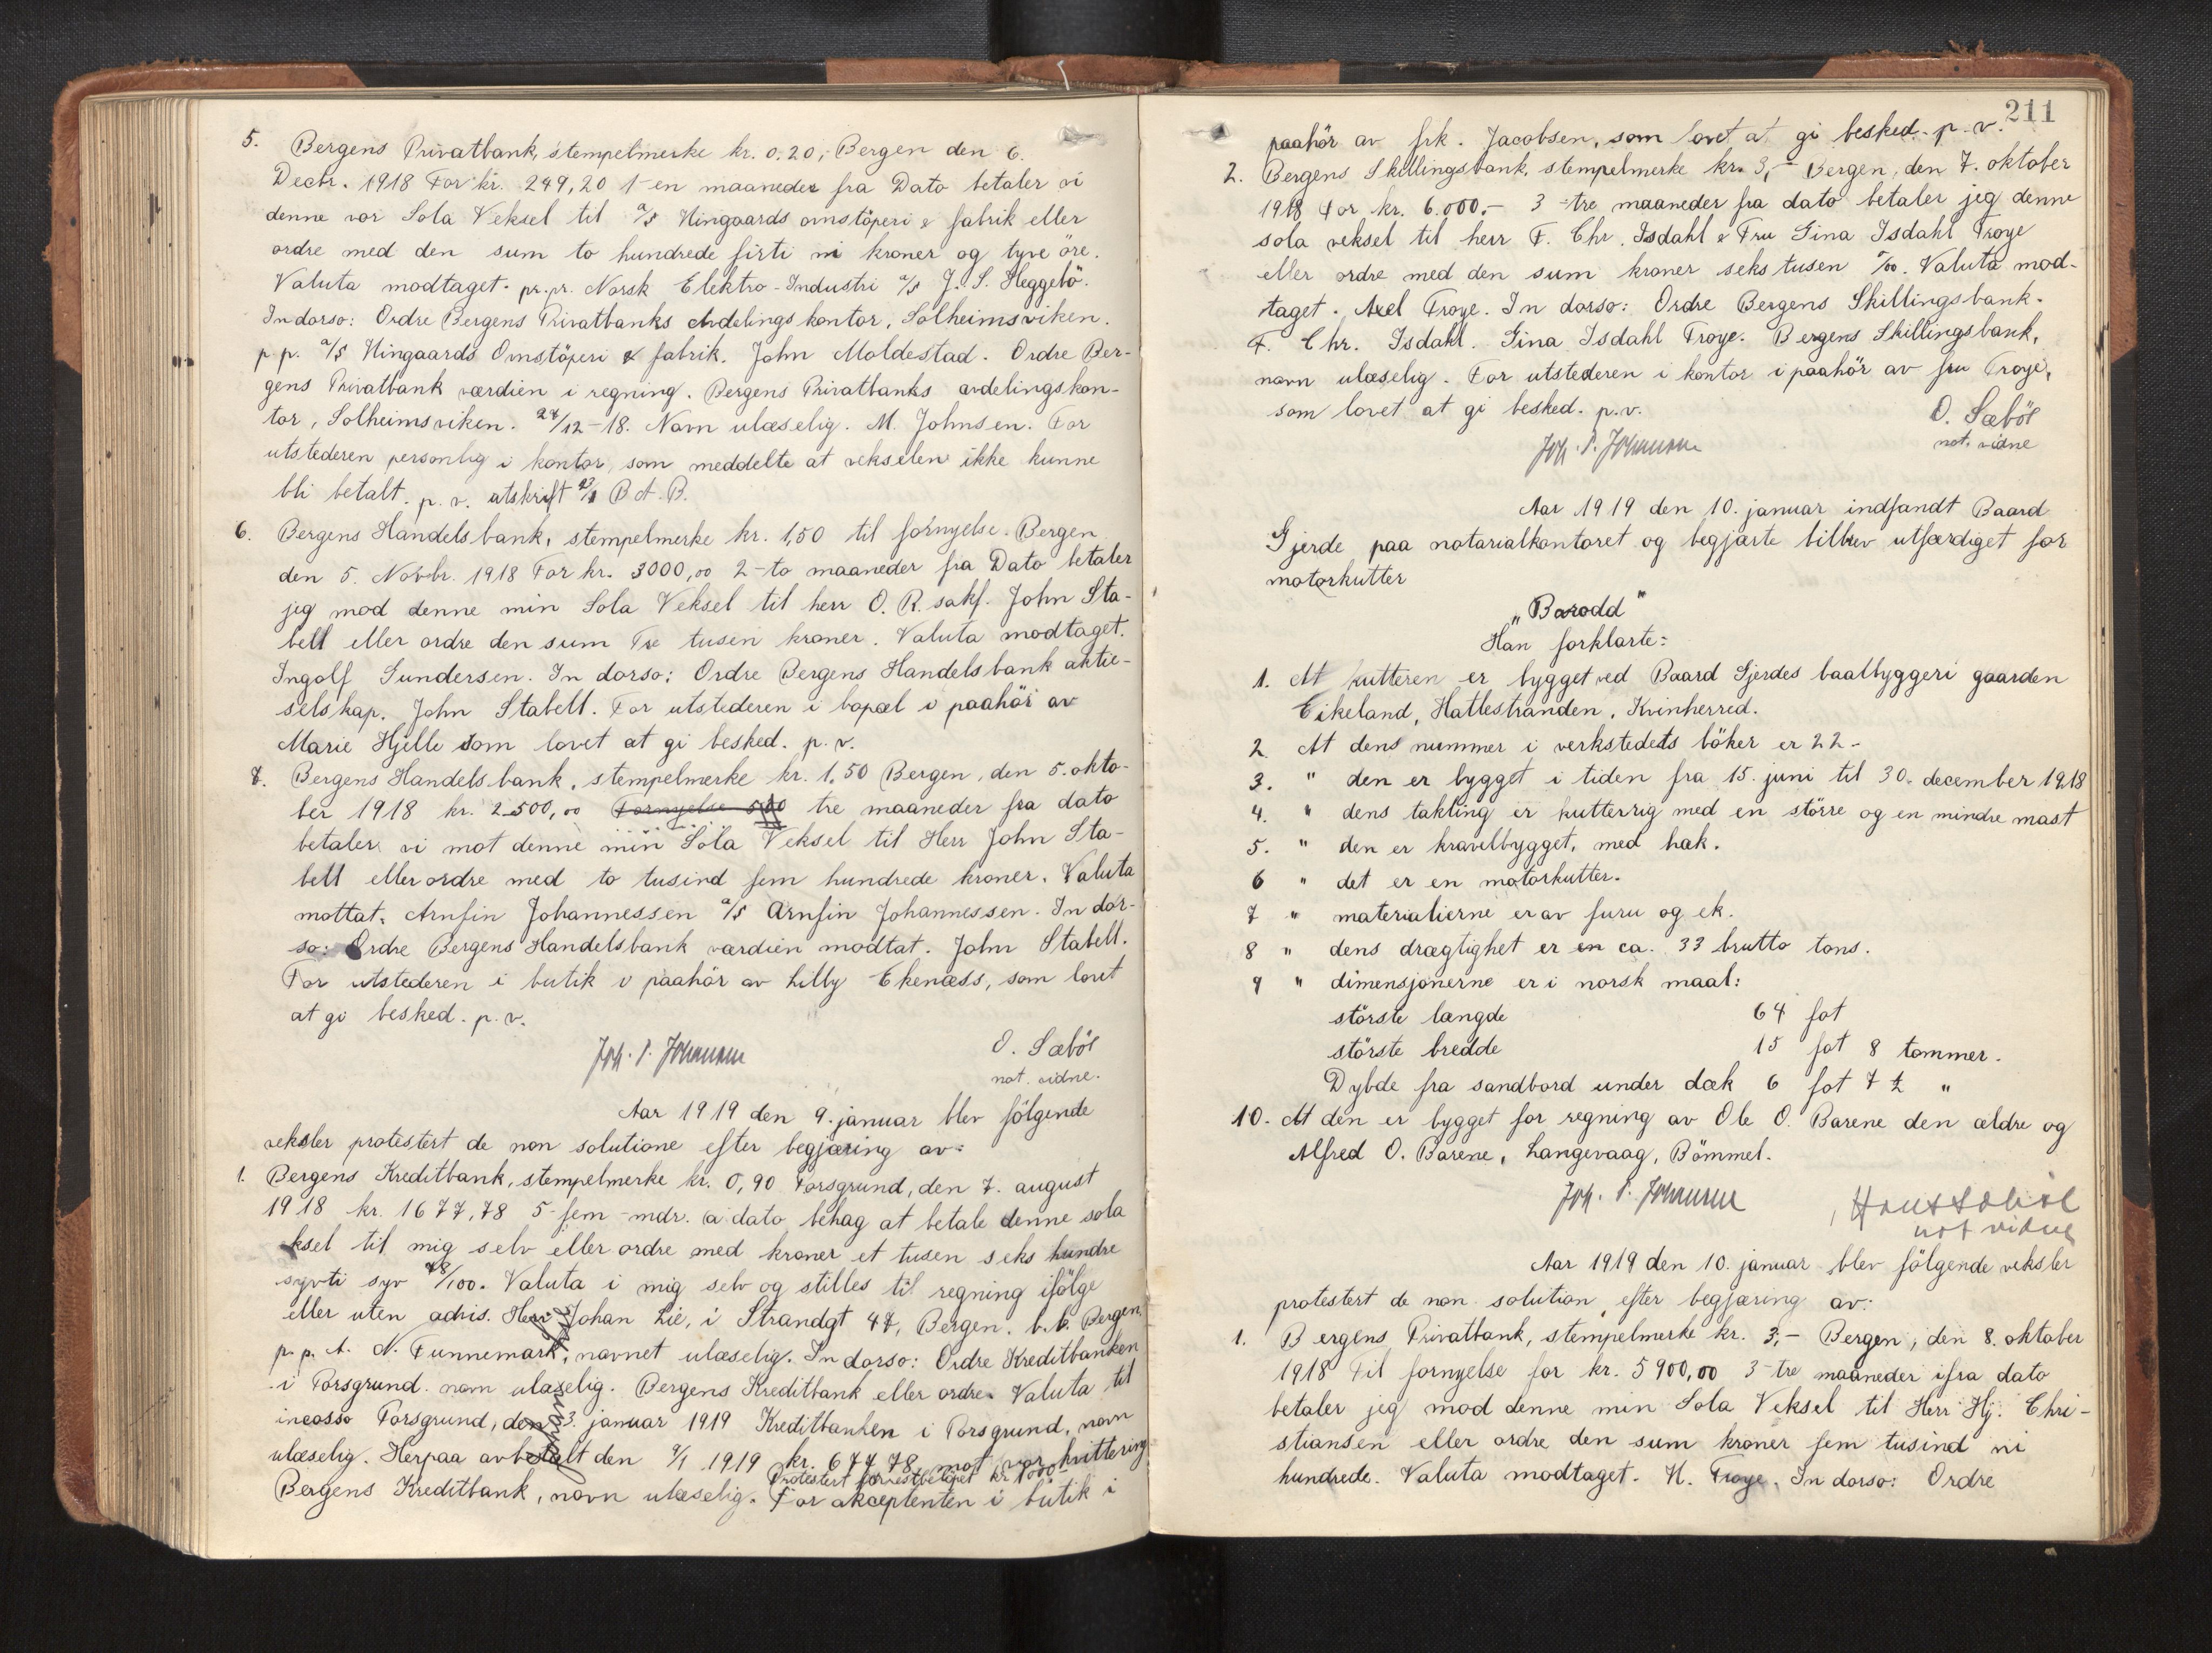 5. Bergens Privatbank, stempelmerke kr. 0.20, Bergen den 6.
Decbr. 1918 For kr. 249,20 1-en maaneder fra Dato betaler vi
denne vor Sola Veksel til a/s Hingaards omstöperi & fabrik eller
ordre med den sum to hundrede firti ni kroner og tyve öre.
Valuta modtaget. pr. pr. Norsk Elektro-Industri a/s J. S. Heggebö.
In dorso: Ordre Bergens Privatbanks Avdelingskontor, Solheimsviken.
p p. a/s Hingaards Omstöperi & fabrik. John Moldestad. Ordre Ber-
gens Privatbank værdien i regning. Bergens Privatbanks avdelingskon-
tor, Solheimsviken. 27/12-18. Navn ulæselig. M. Johnsen. For
utstederen personlig i kontor, som meddelte at vekselen ikke kunne
bli betalt. p. v. utskrift B.A.B.
6. Bergens Handelsbank, stempelmerke kr. 1,50 til fornyelse. Bergen
den 5. Novbr. 1918 For kr. 3000,00 2-to maaneder fra Dato betaler
jeg mod denne min Sola Veksel til herr O. R. sakf. John Sta-
bell eller ordre den sum Tre tusen kroner. Valuta modtaget.
Ingolf Gundersen. In dorso: Ordre Bergens Handelsbank aktie-
selskap. John Stabell. For utstederen i bopæl i paahör av
Marie Hjelle som lovet at gi besked. p. v.
7. Bergens Handelsbank, stempelmerke kr. 1.50 Bergen, den 5. okto-
ber 1918 kr. 2500,00 Fornyelse 500 tre maaneder fra dato
betaler vi mot denne min Sola Veksel til Herr John Sta-
bell eller ordre med to tusind fem hundrede kroner. Valuta
mottat. Arnfin Johannessen a/s Arnfin Johannessen. In dor-
so: Ordre Bergens Handelsbank værdien modtat. John Stabell.
For utstederen i butik i paahör av Lilly Ekenæss, som lovet
at gi besked. p. v.
Joh. P. Johannsen O. Sæböe
not. vidne.
Aar 1919 den 9. januar blev fölgende
veksler protestert de non solutione efter begjæring av:
1. Bergens Kreditbank, stempelmerke kr. 0,90 Porsgrund, den 7. august
1918 kr. 1677,78 5-fem-mdr. a dato behag at betale denne sola
ksel til mig selv eller ordre med kroner et tusen seks hundre
sytti syv 78/100. Valuta i mig selv og stilles til regning ifölge
eller uten advis. Herr Johan Lie, i Strandgt 47, Bergen. Bergen
p. p. A. N. Funnemark, navnet ulæselig. In dorso: Ordre Kreditbanken
i Porsgrund. navn ulæselig. Bergens Kreditbank eller ordre. Valuta til
incasso Porsgrund, den 3. januar 1919 Kreditbanken i Porsgrund, navn
ulæselig. Herpaa avbetalt den 9/1 1919 kr. 677,78, mot vor kvittering
Protestert for restbelöpet kr 1000
Bergens Kreditbank, navn ulæselig. For akceptenten i butik i
211
paahör av frk. Jacobsen, som lovet at gi besked. p. v.
2. Bergens Skillingsbank, stempelmerke kr. 3,- Bergen, den 7. oktober
1918 For kr. 6.000.- 3-tre maaneder fra dato betaler jeg denne
sola veksel til herr F. Chr. Isdahl & Fru Gina Isdahl Troye
eller ordre med den sum kroner seks tusen 0/00. Valuta mod-
taget. Axel Troye. In dorso: Ordre Bergens Skillingsbank.
F. Chr. Isdahl. Gina Isdahl Troye. Bergens Skillingsbank,
navn ulæselig. For utstederen i kontor i paahör av fru Troye,
som lovet at gi besked. p. v. O. Sæböe
Joh. P. Johannsen not. vidne
Aar 1919 den 10. januar indfandt Baard
Gjerde paa notarialkontoret og begjærte bilbrev utfærdiget for
motorkutter
"Barodd"
Han forklarte:
1. At kutteren er bygget ved Baard Gjerdes baatbyggeri gaarden
Eikeland, Hatlestranden, Kvinherred.
2 At dens nummer i verkstedets böker er 22.
3. " den er bygget i tiden fra 15. juni til 30. december 1918
4. " dens takling er kutterrig med en större og en mindre mast
5. " den er kravelbygget, med hak.
6 " det er en motorkutter.
7 " materialierne er av furu og ek.
8 " dens drægtighet er en ca. 33 brutto tons.
9 " dimensjonerne er i norsk maal:
störste længde 64 fot
störste bredde 15 fot 8 tommer.
Dybde fra sandbord under dæk 6 fot 7 ½ "
10. At den er bygget for regning av Ole O. Barene den ældre og
Alfred O. Barene, Langevaag, Bömmel.
Joh. P. Johannsen Hans Sæböe
not vidne
Aar 1919 den 10. januar blev fölgende veksler
protestert de non solution efter begjæring av:
1. Bergens Privatbank, stempelmerke kr. 3,- Bergen, den 8. oktober
1918 Til fornyelse for kr. 5900,00 3-tre maaneder ifra dato
betaler jeg mod denne min Sola Veksel til Herr Hj. Chri-
stiansen eller ordre den sum kroner fem tusind ni
hundrede. Valuta modtaget. N. Troye. In dorso: Ordre